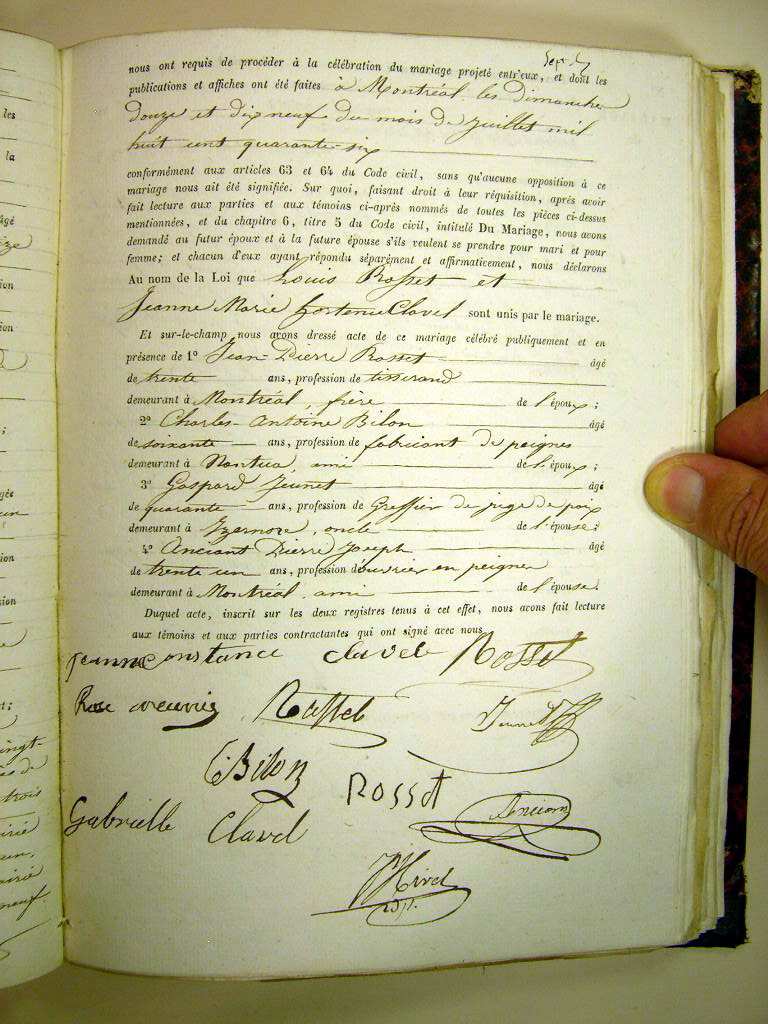 nous ont requis de procéder à la célébration du mariage projeté entr'eux, et dont les
publications et affiches ont été faites à Montréal les dimanches
douze et dix neuf du mois de juillet mil
huit cent quarante-six
conformément aux articles 63 et 64 du Code civil, sans qu'aucune opposition à ce
mariage nous ait été signifiée. Sur quoi, faisant droit à leur réquisition, après avoir
fait lecture aux parties et aux témoins ci-après nommés de toutes les pièces ci-dessus
mentionnées, et du chapitre 6, titre 5 du Code civil, intitulé Du Mariage, nous avons
demandé au futur époux et à la future épouse s'ils veulent se prendre pour mari et pour
femme; et chacun d'eux ayant répondu séparément et affirmativement, nous déclarons
Au nom de la Loi que Louis Rosset et
Jeanne Marie hortense Clavel sont unis par le mariage.
Et sur-le-champ nous avons dressé acte de ce mariage célébré publiquement et en
présence de 1° Jean-Pierre Rosset âgé
de trente ans, profession de tisserand
demeurant à Montréal, frère de l'époux;
2° Charles-Antoine Bilon âgé
de soixante ans, profession de fabricant de peignes
demeurant à Nantua, ami de l'époux;
3° Gaspard Jeunet âgé
de quarante ans, profession de Greffier de juge de paix
demeurant à Izernore, oncle de l'épouse;
4° Anciant Pierre Joseph âgé
de trente un ans, profession d'ouvrier en peignes
demeurant à Montréal, ami de l'épouse.
Duquel acte, inscrit sur les deux registres tenus à cet effet, nous avons fait lecture
aux témoins et aux parties contractantes qui ont signé avec nous
Jeanne Constance Clavel Rosset
Rose Rosset Jeunet
Bilon Rosset
Gabrielle Clavel